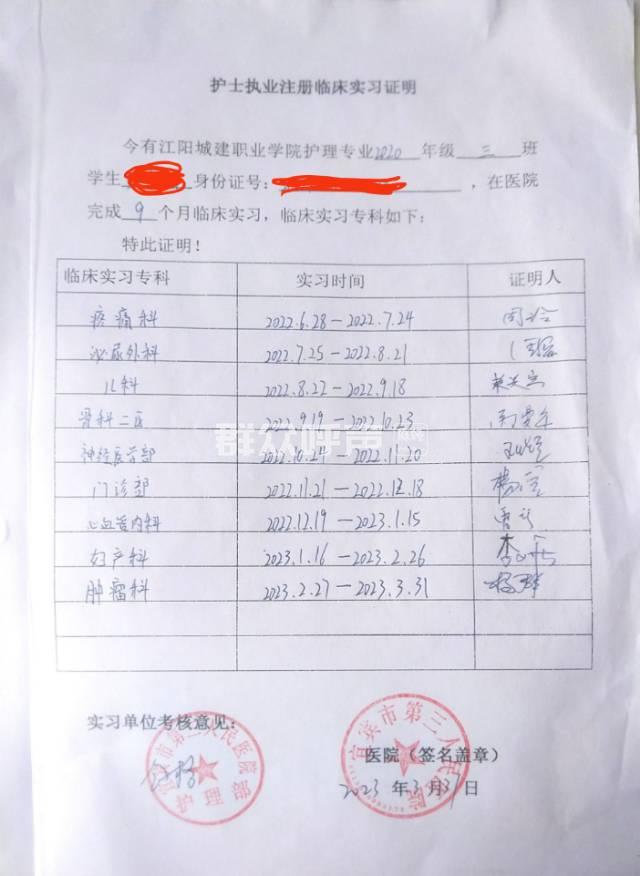 护士执业注册临床实习证明
今有江阳城建职业学院护理专业2020年级三班
学生 身份证号: ,在医院
完成9个月临床实习,临床实习专科如下:
特此证明!
临床实习专科 实习时间 证明人
疼痛科 2022.6.28-2022.7.24
泌尿外科 2022.7.25-2022.8.21
儿科 2022.8.22-2022.9.18
骨科二区 2022.9.19-2022.10.23
群众呼声
神经医学部 2022.10.24-2022.11.20
门诊部 2022.11.21-2022.12.18
心血管内科 2022.12.19-2023.1.15
妇产科 2023.1.16-2023.2.26
肿瘤科 2023.2.27-2023.3.31
实习单位考核意见:
宜宾市第三人民医院
护理部
合格
宜宾市第三人民医院
医院(签名盖章)
2023年3月31日